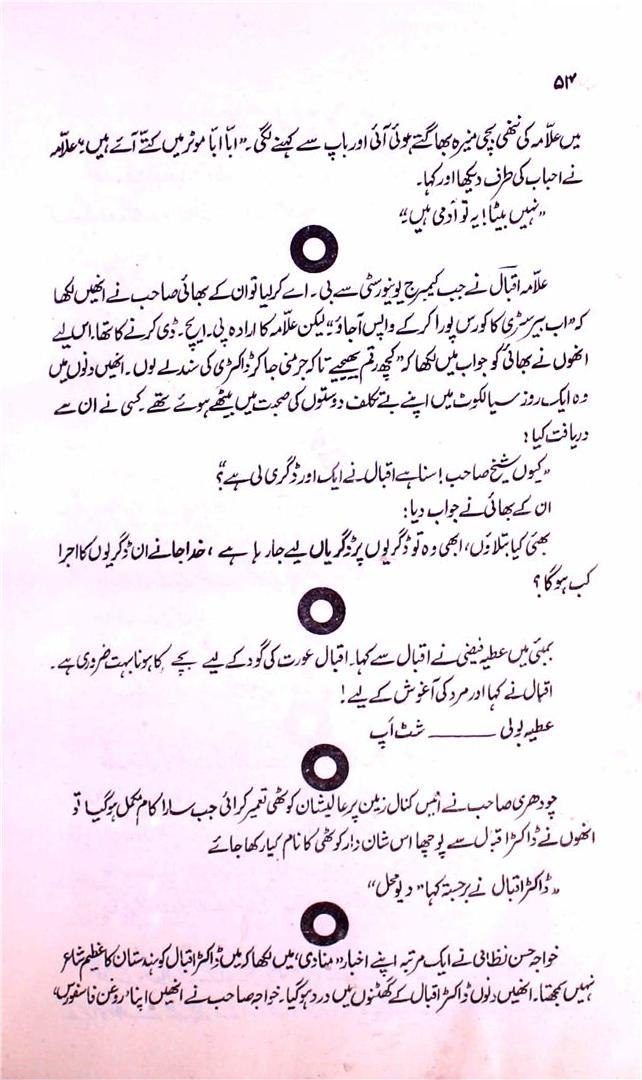 ۵۴
میں علّامہ کی ننھی بچی منیرہ بھاگتے ہوئی آئی اور باپ سے کہنے لگی۔ ”ابّا ابّا موٹر میں کتّے آئے ہیں“ علّامہ
نے احباب کی طرف دیکھا اور کہا۔
”نہیں بیٹا! یہ تو آدمی ہیں“
علّامہ اقبال نے جب کیمبرج یونیورسٹی سے بی۔ اے کر لیا تو ان کے بھائی صاحب نے انھیں لکھا
کہ ”اب بیرسٹری کا کورس پورا کر کے واپس آجاؤ“ لیکن علّامہ کا ارادہ پی۔ ایچ۔ ڈی کرنے کا تھا۔ اس لیے
انھوں نے بھائی کو جواب میں لکھا کہ ”کچھ رقم بھیجیے تاکہ جرمنی جا کر ڈاکٹری کی سند لے لوں۔ انھیں دنوں میں
وہ ایک روز سیالکوٹ میں اپنے بے تکلف دوستوں کی صحبت میں بیٹھے ہوئے تھے۔ کسی نے ان سے
دریافت کیا:
”کیوں شیخ صاحب! سنا ہے اقبال نے ایک اور ڈگری لی ہے؟“
ان کے بھائی نے جواب دیا:
بھئی کیا بتلاؤں، ابھی وہ تو ڈگریوں پر ڈگریاں لیے جا رہا ہے، خدا جانے ان ڈگریوں کا اجرا
کب ہوگا؟
بمبئی میں عطیہ فیضی نے اقبال سے کہا۔ اقبال عورت کی گود کے لیے بچے کا ہونا بہت ضروری ہے۔
اقبال نے کہا اور مرد کی آغوش کے لیے!
عطیہ بولی ——— شٹ اَپ
چودھری صاحب نے اُنیس کنال زمین پر عالیشان کوٹھی تعمیر کرائی جب سارا کام مکمل ہوگیا تو
انھوں نے ڈاکٹر اقبال سے پوچھا اس شان دار کوٹھی کا نام کیا رکھا جائے
”ڈاکٹر اقبال نے برجستہ کہا ”دیو محل“
خواجہ حسن نظامی نے ایک مرتبہ اپنے اخبار ”منادی“ میں لکھا کہ میں ڈاکٹر اقبال کو ہندستان کا عظیم شاعر
نہیں سمجھتا۔ انھیں دنوں ڈاکٹر اقبال کے گھٹنوں میں درد ہوگیا۔ خواجہ صاحب نے انھیں اپنا ’روغن فاسفورس‘